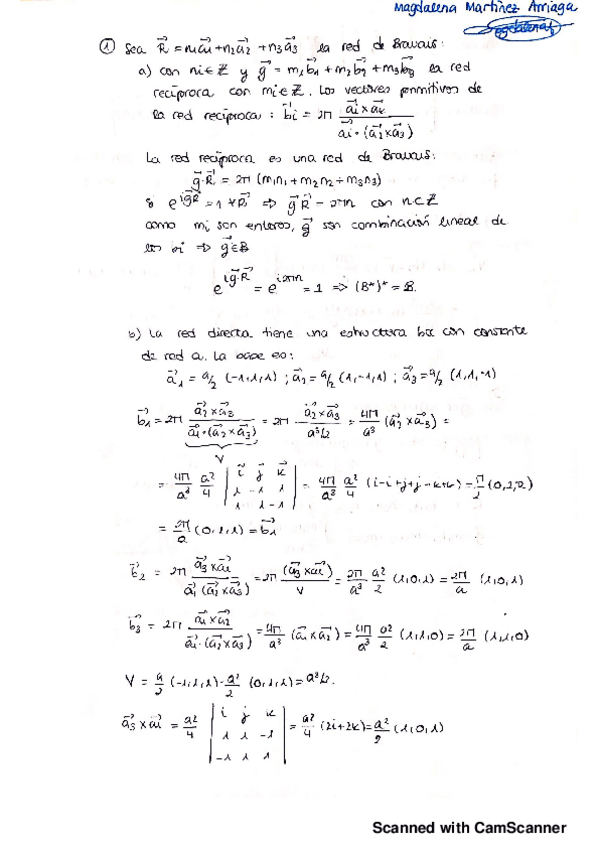 Magdalena Martínez Arriaga
① Sea R⃗ = n₁a⃗₁ + n₂a⃗₂ + n₃a⃗₃ la red de Bravais:
a) con ni∈ℤ y g⃗ = m₁b⃗₁ + m₂b⃗₂ + m₃b⃗₃ la red
recíproca con mi∈ℤ. Los vectores primitivos de
la red recíproca: b⃗i = 2π (a⃗j × a⃗k) / (a⃗₁·(a⃗₂×a⃗₃))
La red recíproca es una red de Bravais:
g⃗·R⃗ = 2π (m₁n₁ + m₂n₂ + m₃n₃)
si e^{ig⃗R⃗} = 1 ∀R⃗ ⇒ g⃗·R⃗ = 2πn con n∈ℤ
como mi son enteros, g⃗ son combinación lineal de
los bi ⇒ g⃗∈B
e^{ig⃗·R⃗} = e^{i2πn} = 1 ⇒ (B*)* = B.
b) La red directa tiene una estructura bcc con constante
de red a. La base es:
a⃗₁ = a/2 (-1,1,1) ; a⃗₂ = a/2 (1,-1,1) ; a⃗₃ = a/2 (1,1,-1)
b⃗₁ = 2π (a⃗₂×a⃗₃) / (a⃗₁·(a⃗₂×a⃗₃)) = 2π (a⃗₂×a⃗₃) / (a³/2) = 4π/a³ (a⃗₂×a⃗₃) =
V
= 4π/a³ a²/4 | i⃗ j⃗ k⃗ ; 1 -1 1 ; 1 1 -1 | = 4π/a³ a²/4 (i-i+j+j-k+k) = π/2 (0,2,2)
= 2π/a (0,1,1) = b⃗₁
b⃗₂ = 2π (a⃗₃×a⃗₁) / (a⃗₁(a⃗₂×a⃗₃)) = 2π (a⃗₃×a⃗₁) / V = 2π/a³ a²/2 (1,0,1) = 2π/a (1,0,1)
b⃗₃ = 2π (a⃗₁×a⃗₂) / (a⃗₁·(a⃗₂×a⃗₃)) = 4π/a³ (a⃗₁×a⃗₂) = 4π/a³ a²/2 (1,1,0) = 2π/a (1,1,0)
V = a/2 (-1,1,1)·a²/2 (0,1,1) = a³/2.
a⃗₃×a⃗₁ = a²/4 | i j k ; 1 1 -1 ; -1 1 1 | = a²/4 (2i+2k) = a²/2 (1,0,1)
Scanned with CamScanner